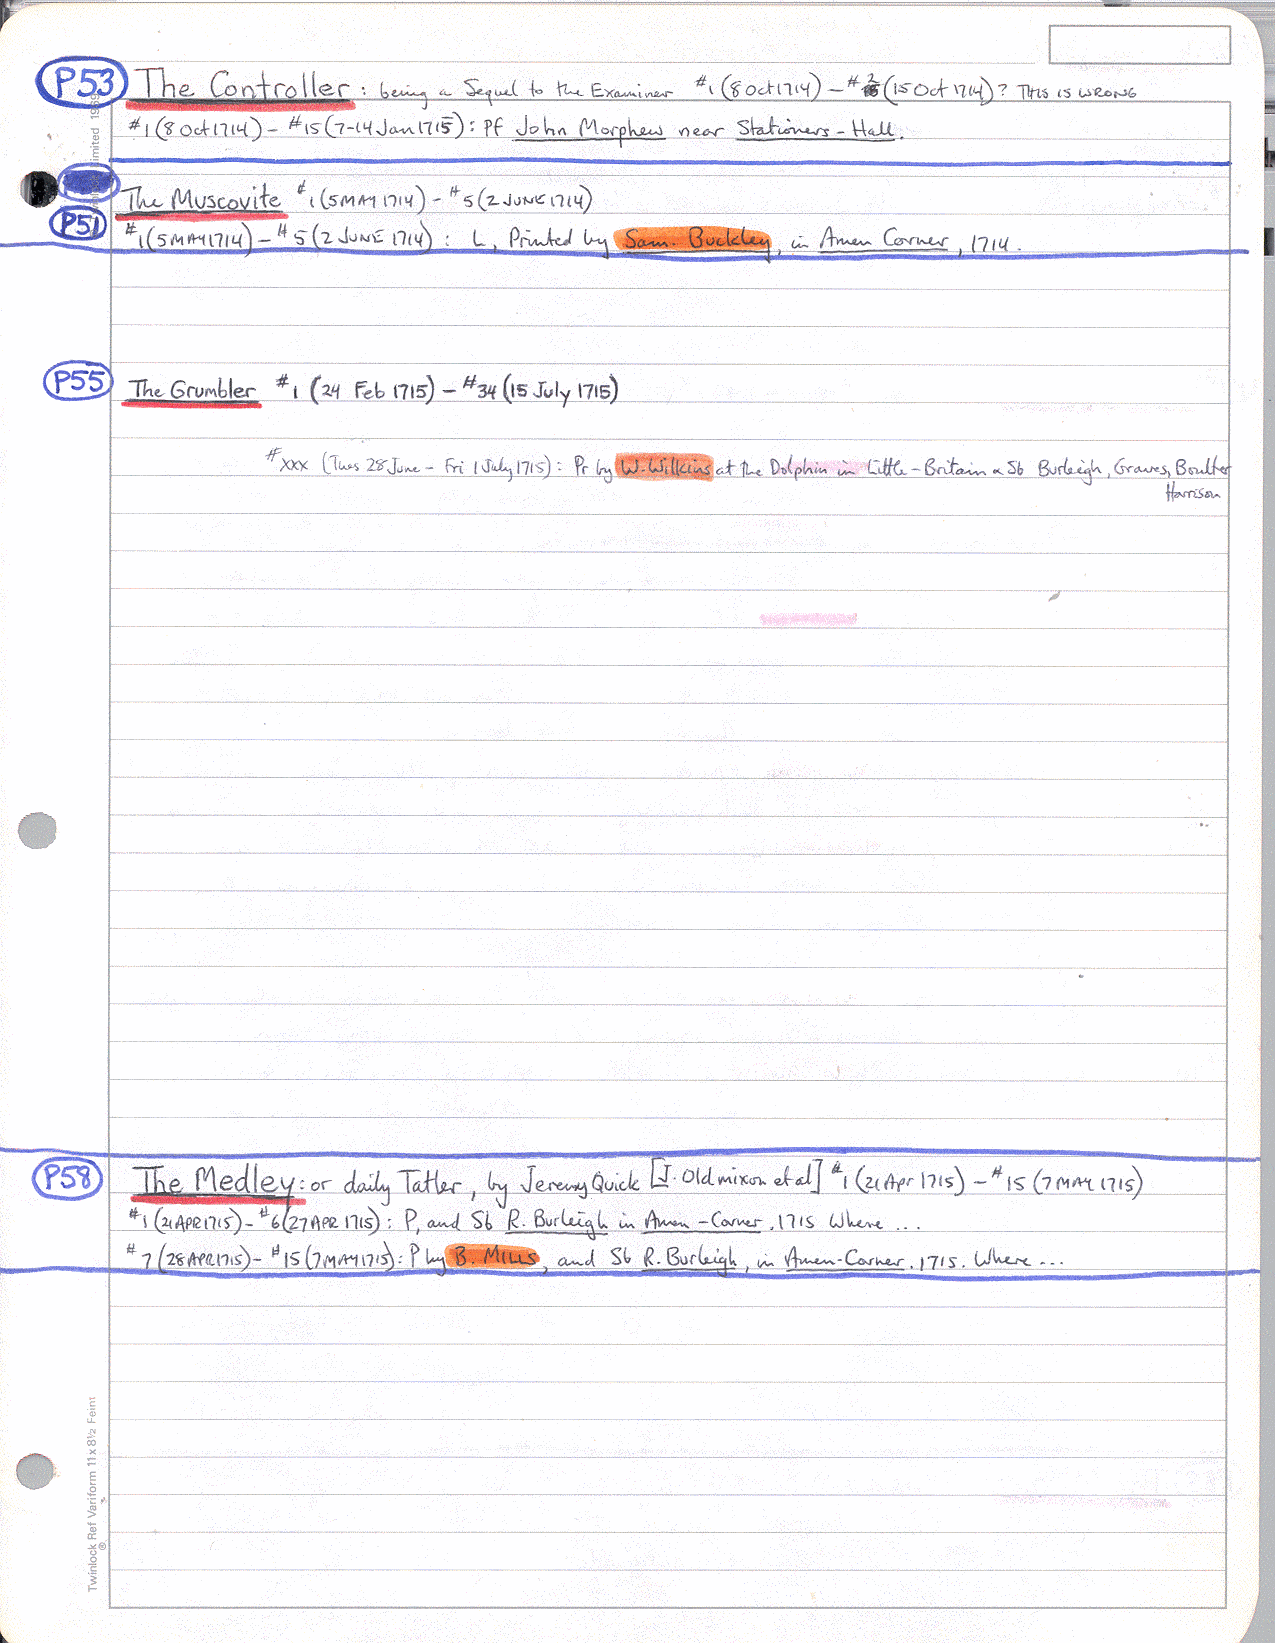 P53 The Controller : being a Sequel to the Examiner #1 (8 Oct 1714) – #2 (15 Oct 1714)? THIS IS WRONG
#1 (8 Oct 1714) – #15 (7-14 Jan 1715) : Pf John Morphew near Stationers-Hall.
The Muscovite #1 (5 MAY 1714) – #5 (2 JUNE 1714)
P51 #1 (5 MAY 1714) – #5 (2 JUNE 1714) : L, Printed by Sam. Buckley, in Amen Corner, 1714.
P55 The Grumbler #1 (24 Feb 1715) – #34 (15 July 1715)
#xxx (Tues 28 June – Fri 1 July 1715) : Pr by W. Wilkins at the Dolphin in Little-Britain & Sb Burleigh, Graves, Boulter
Harrison
P58 The Medley: or daily Tatler, by Jeremy Quick [J. Oldmixon et al] #1 (21 Apr 1715) – #15 (7 MAY 1715)
#1 (21 APR 1715) – #6 (27 APR 1715) : P, and Sb R. Burleigh in Amen-Corner. 1715 Where ...
#7 (28 APR 1715) – #15 (7 MAY 1715) : P by B. MILLS, and Sb R. Burleigh, in Amen-Corner. 1715. Where ...
Twinlock Ref Variform 11 x 8½ Feint